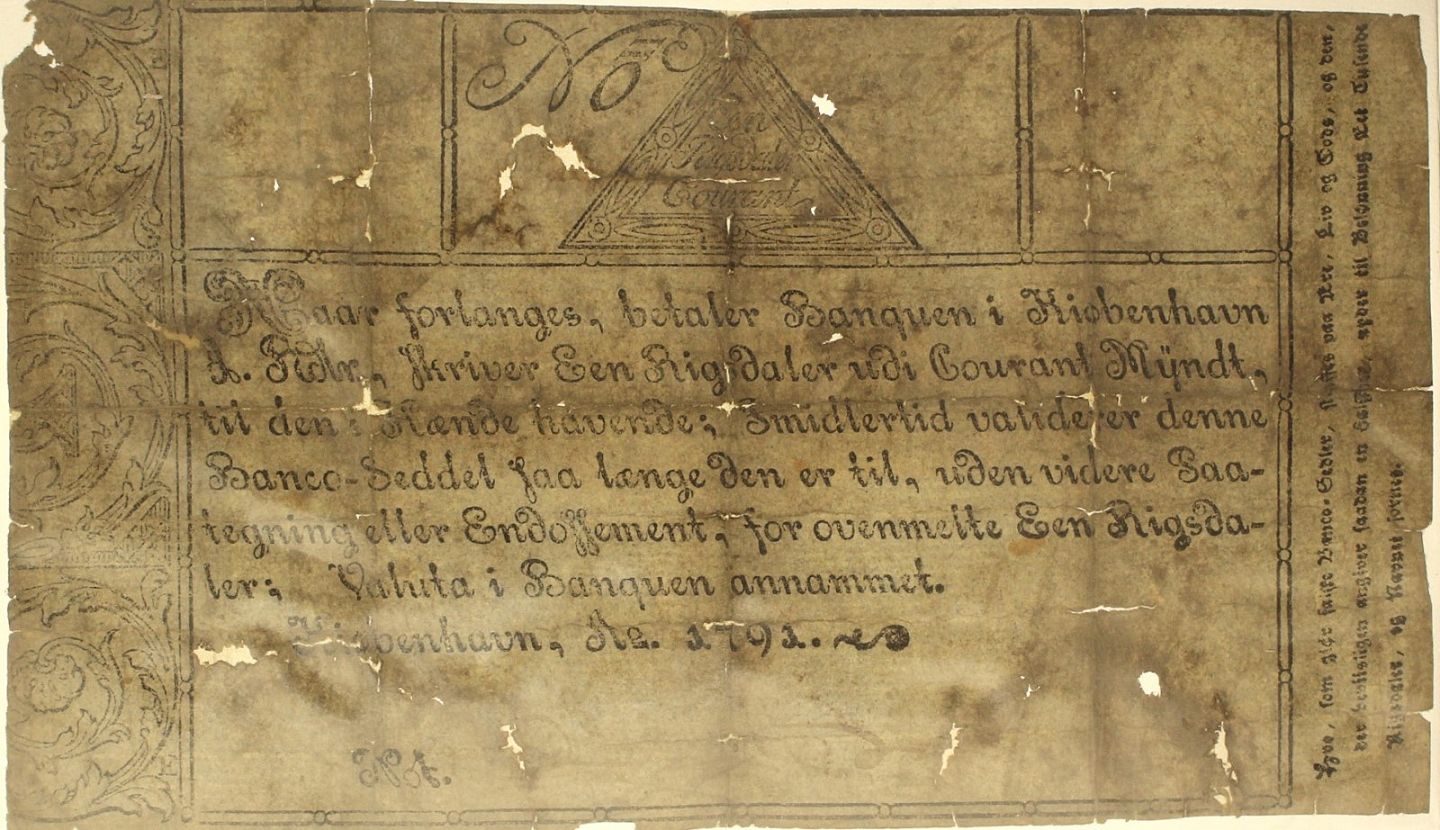 No
Een
Rigsdaler
Courant
Naar forlanges, betaler Banquen i Kiøbenhavn
1. Rdlr., skriver Een Rigsdaler udi Courant Mÿndt,
til den Ihænde havende; Imidlertid validerer denne
Banco-Seddel saa længe den er til, uden videre Paa-
tegning eller Endossement, for ovenmelte Een Rigsda-
ler; Valuta i Banquen annammet.
Kiøbenhavn, Ao. 1791.
No.
Hvo, som giør falske Banco-Sedler, straffes paa Ære, Liv og Gods, og den,
der beviisligen angiver saadan en Falskner, nyder til Belønning Eet Tusende
Rigsdaler, og Navnet forties.